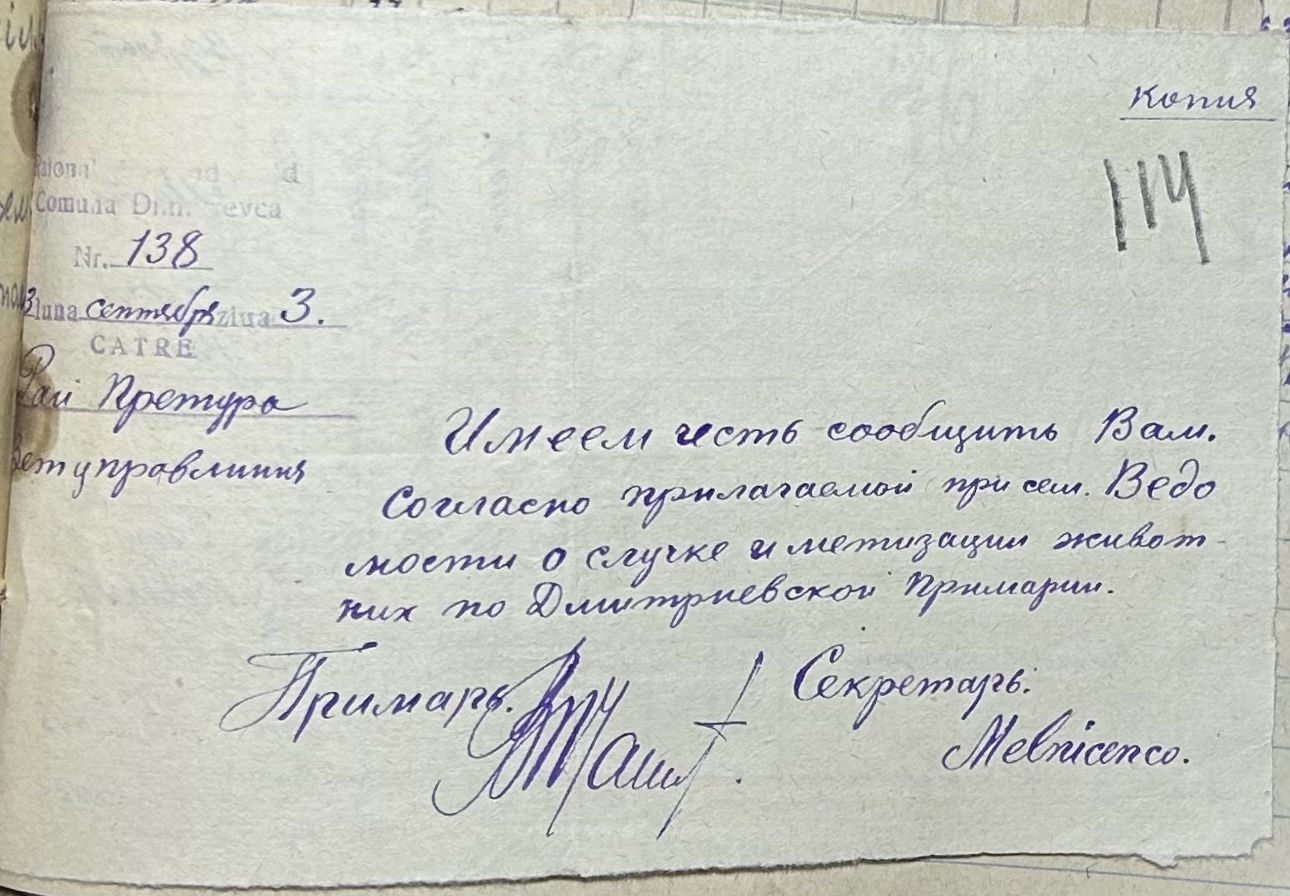 Копия
114
Comuna
Nr. 138
luna сентября ziua 3.
CATRE
Рай Претура
Ветуправлиния
Имеем честь сообщить Вам.
Согласно прилагаемой при сем. Ведо
мости о случке и метизации живот-
них по Дмитриевской Примарии.
Примарь.
Секретарь.
Melnicenco.